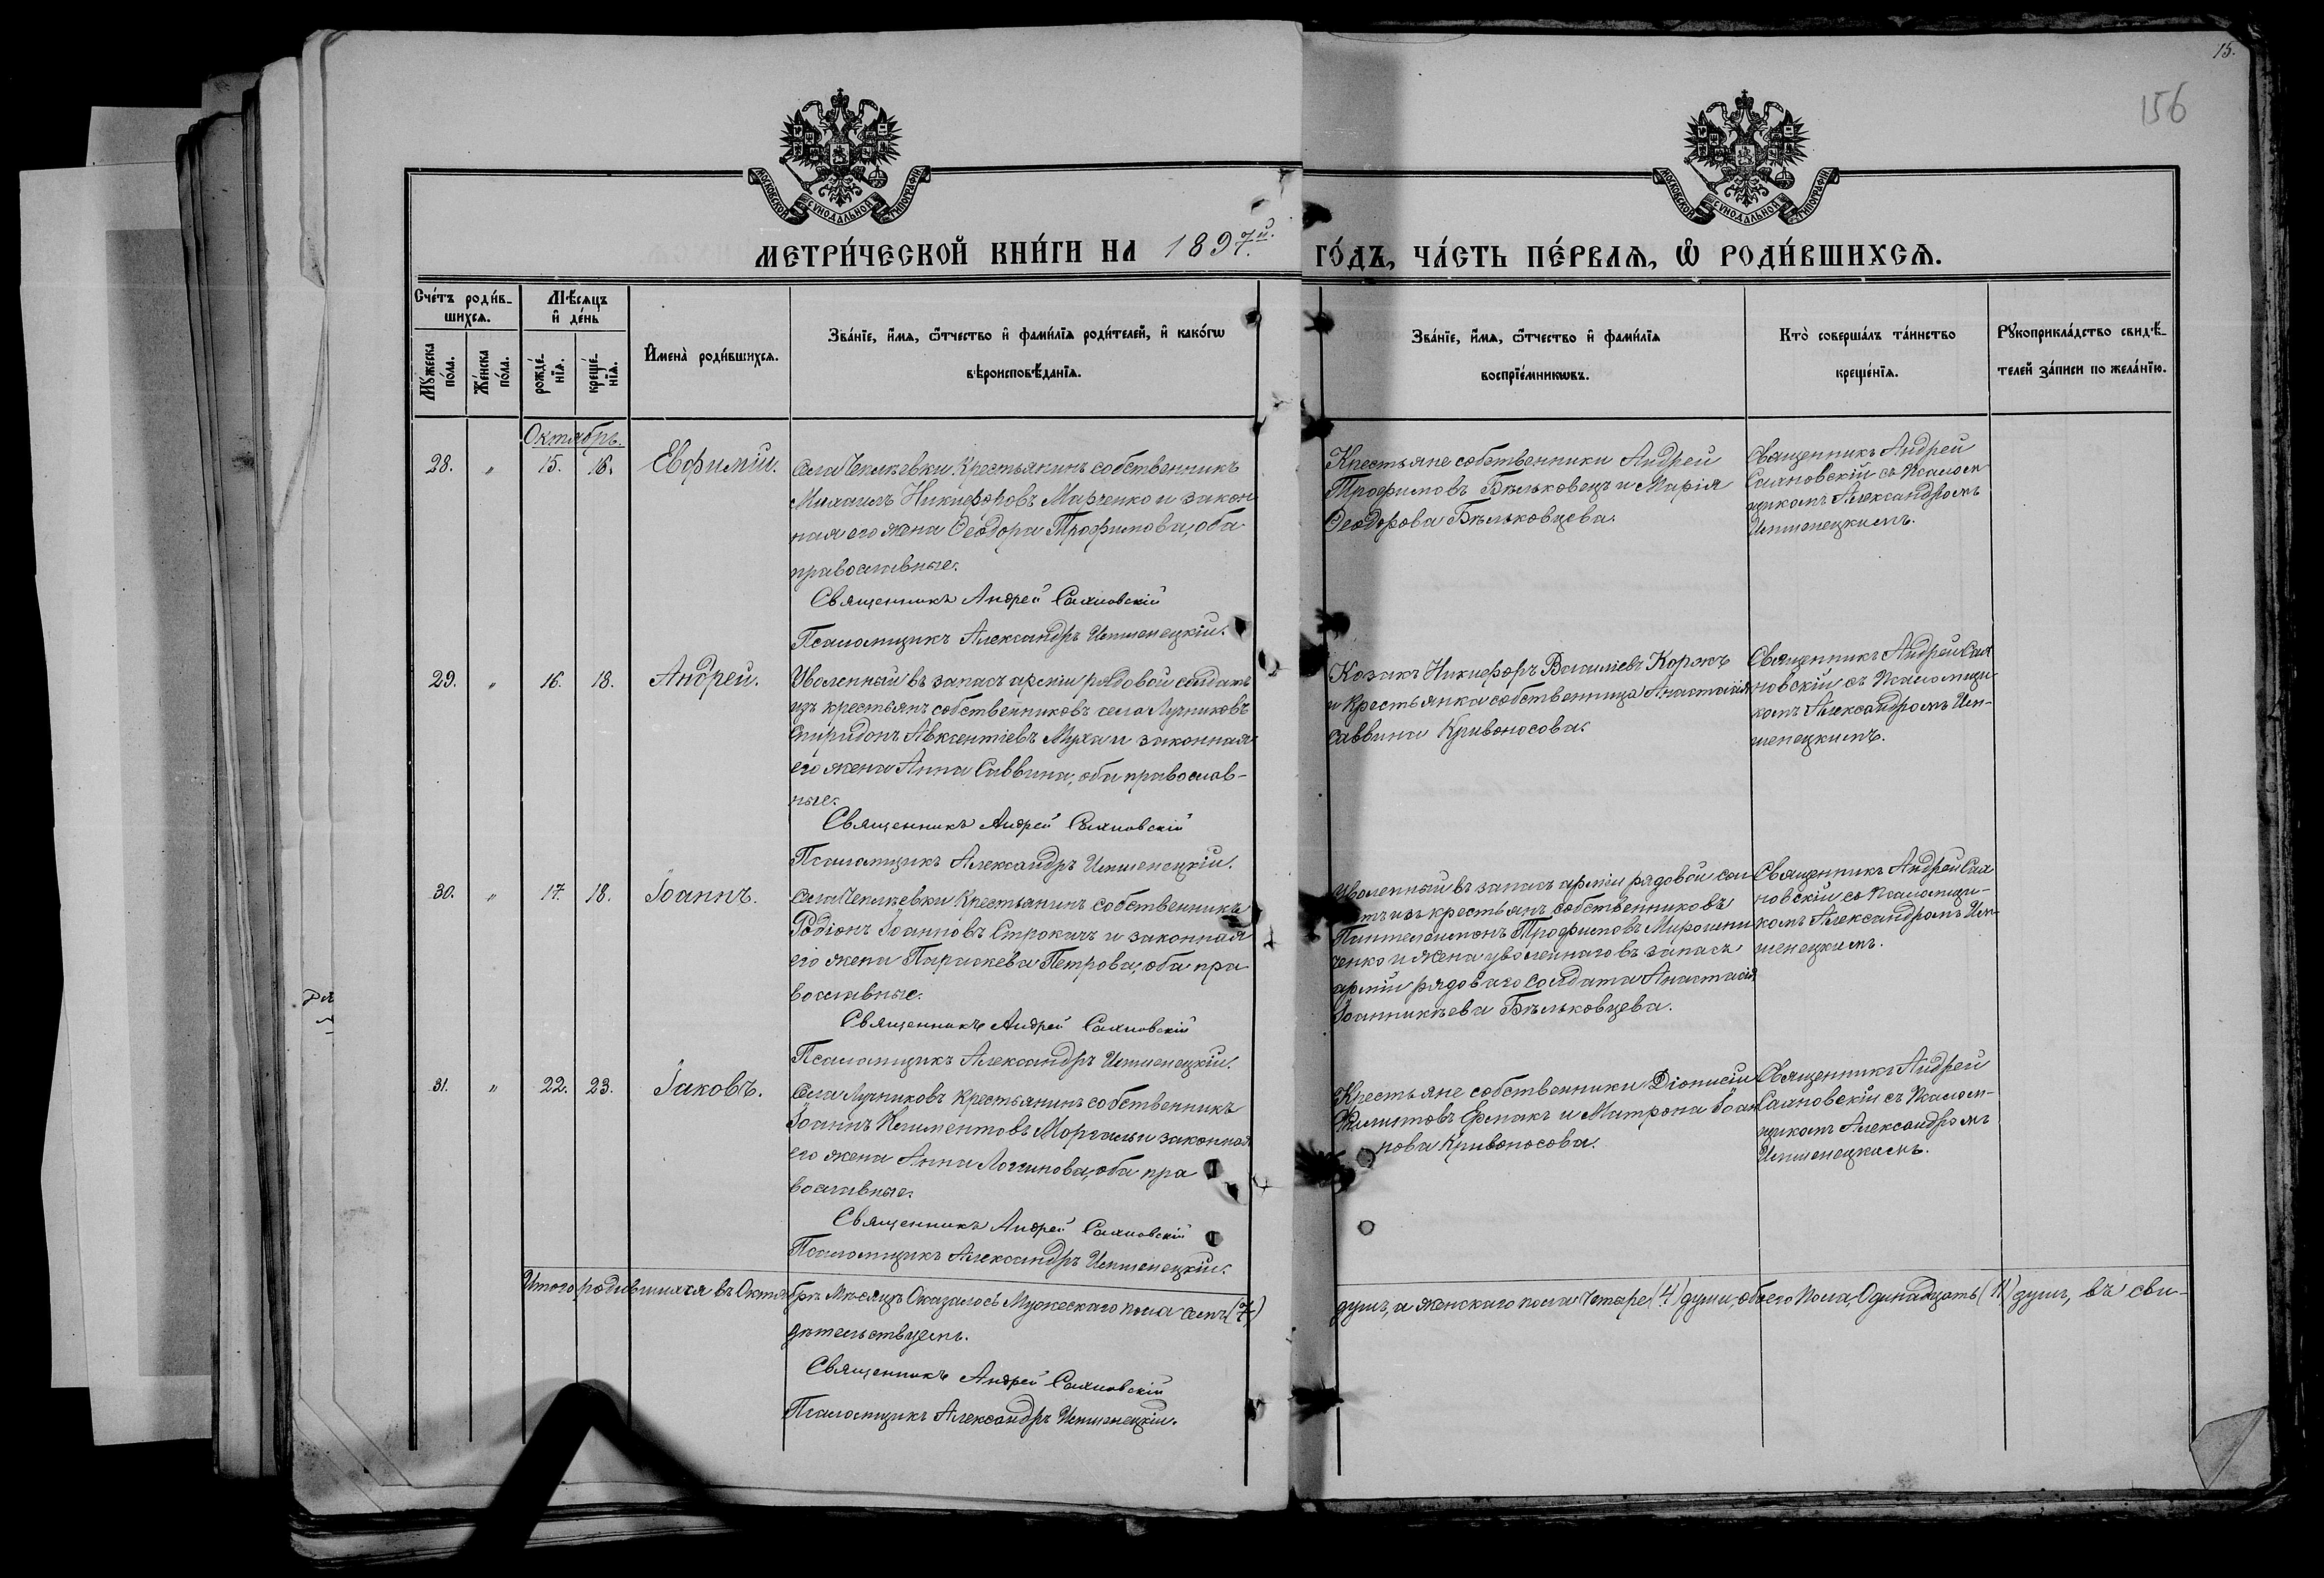 15.
156
МОСКОВСКОЙ СѴНОДАЛЬНОЙ ТИПОГРАФІИ
МОСКОВСКОЙ СѴНОДАЛЬНОЙ ТИПОГРАФІИ
МЕТРИ́ЧЕСКОЙ КНИ́ГИ НА 1897й. ГО́ДЪ, ЧА́СТЬ ПЕ́РВАѦ, Ѡ҆ РОДИ́ВШИХСѦ.
Сче́тъ роди́в-
шихсѧ.
Мꙋ́жеска по́ла.
Же́нска по́ла.
Мѣ́сѧцъ
и҆ де́нь
рожде́-
нїѧ.
креще́-
нїѧ.
И҆мена̀ роди́вшихсѧ.
Зва́нїе, и҆́мѧ, ѻ҆́тчество и҆ фами́лїѧ роди́телей, и҆ како́гѡ
вѣроисповѣ́данїѧ.
Зва́нїе, и҆́мѧ, ѻ҆́тчество и҆ фами́лїѧ
воспрїе́мникѡвъ.
Кто̀ соверша́лъ та́инство
креще́нїѧ.
Рꙋкоприкла́дство свидѣ́-
телей за́писи по жела́нїю.
Октябрь.
28. " 15. 16. Евфимій.
Села Чепиževки Крестьянинъ собственникъ
Михаилъ Никифоровъ Марченко и закон
ная его жена Ѳеодора Трофимова, оба
православные.
Священникъ Андрей Сахновскій
Псаломщикъ Александръ
Крестьяне собственники Андрей
Трофимовъ Бѣльковецъ и Марія
Ѳеодорова Бѣльковцева.
Священникъ Андрей
Сахновскій съ Псалом
щикомъ Александромъ
29. " 16. 18. Андрей.
Уволенный въ запасъ арміи рядовой солдатъ
изъ крестьянъ собственниковъ села Лучниковъ
Спиридонъ Авксентіевъ Муха и законная
его жена Анна Саввина, оба православ-
ные.
Священникъ Андрей Сахновскій
Псаломщикъ Александръ
Козакъ Никифоръ Василіевъ Коржъ
и Крестьянка собственница Анастасія
Саввина Кривоносова.
Священникъ Андрей Сах
новскій съ Псаломщи
комъ Александромъ
30. " 17. 18. Іоаннъ.
Крестьянинъ собственникъ
Родіонъ Іоанновъ Строкачъ и законная
его жена Параскева Петрова, оба пра
вославные.
Священникъ Андрей Сахновскій
Псаломщикъ Александръ
Уволенный въ запасъ арміи рядовой сол
датъ изъ крестьянъ собственниковъ
Пантелеимонъ Трофимовъ Мирошни
ченко и жена уволеннаго въ запасъ
арміи рядоваго солдата Анастасія
Іоанникіева Бѣльковцева.
Священникъ Андрей Сах
новскій съ Псаломщи-
комъ Александромъ
31. " 22. 23. Іаковъ.
Села Лучниковъ Крестьянинъ собственникъ
Іоаннъ Климентовъ Моргаль и законная
его жена Анна Логинова, оба пра
вославные.
Священникъ Андрей Сахновскій
Псаломщикъ Александръ
Крестьяне собственники Діонисій
Филиповъ Ермакъ и Матрона Іоан
нова Кривоносова.
Священникъ Андрей
Сахновскій съ Псалом-
щикомъ Александромъ
Итого родившихся въ Октябрѣ Мѣсяцѣ Оказалось Мужескаго пола семь (7) душъ, а женскаго пола Четыре (4) души, обоего пола, Одинадцать (11) душъ, въ сви-
дѣтельствуемъ.
Священникъ Андрей Сахновскій
Псаломщикъ Александръ